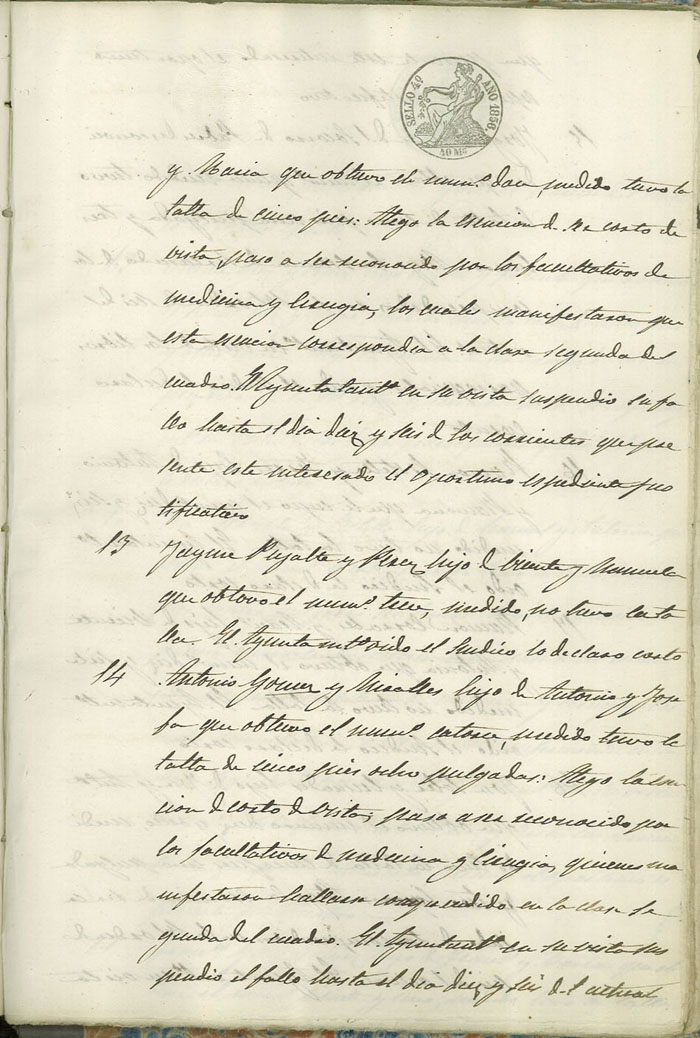 SELLO 4º AÑO 1856.
40 Ms
y Maria que obtuvo el num.º doce, medido tuvo la
talla de cinco pies: Alego la esencion de ser corto de
vista, paso a ser reconocido por los facultativos de
medicina y Cirugia, los cuales manifestaron que
esta esencion correspondia a la clase segunda del
cuadro. El Ayuntamt.º en su vista suspendio su fa
llo hasta el dia diez y seis de los corrientes que pre
sente este interesado el oportuno espediente jus
tificativo
13 Jayme Pujalte y Perez hijo de Vicente y Manuela
que obtuvo el num.º trece, medido, no tuvo la ta
lla. El Ayuntamt.º oido el Sindico lo declaro corto
14 Antonio Gomez y Miralles hijo de Antonio y Jose
fa que obtuvo el num.º catorce, medido tuvo la
talla de cinco pies ocho pulgadas: Alego la esen
cion de corto de vista, paso a ser reconocido por
los facultativos de medicina y Cirugia, quienes ma
nifestaron hallarse comprendido en la clase se
gunda del cuadro. El Ayuntamt.º en su vista sus
pendio el fallo hasta el dia diez y seis del actual